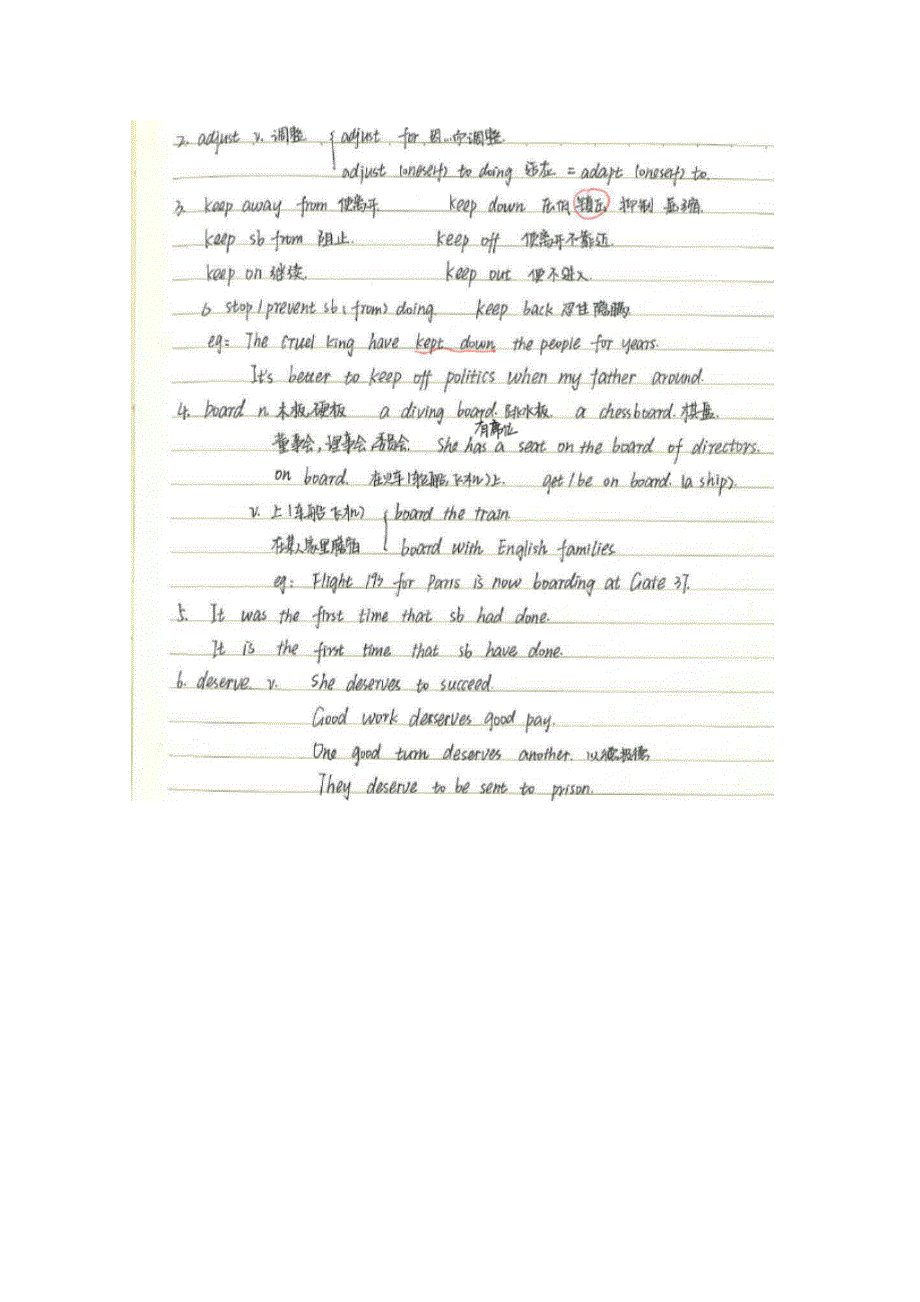 2. adjust v. 调整 { adjust for 因…而调整
adjust (oneself) to doing 适应 = adapt (oneself) to.
3. keep away from 使离开 keep down 压低 镇压 抑制 蜷缩
keep sb from 阻止. keep off 使离开不靠近.
keep on 继续. keep out 使不进入.
stop/prevent sb (from) doing. keep back 忍住 隐瞒
eg: The cruel king have kept down the people for years.
It's better to keep off politics when my father around.
4. board n. 木板, 硬板 a diving board. 跳水板. a chessboard. 棋盘.
有席位
董事会, 理事会, 委员会. She has a seat on the board of directors.
on board. 在火车(轮船, 飞机)上. get/be on board. (a ship).
v. 上(车船飞机) { board the train
在某人家里膳宿 board with English families
eg: Flight 193 for Paris is now boarding at Gate 37.
5. It was the first time that sb had done.
It is the first time that sb have done.
6. deserve v. She deserves to succeed.
Good work derserves good pay.
One good turn deserves another. 以德报德
They deserve to be sent to prison.